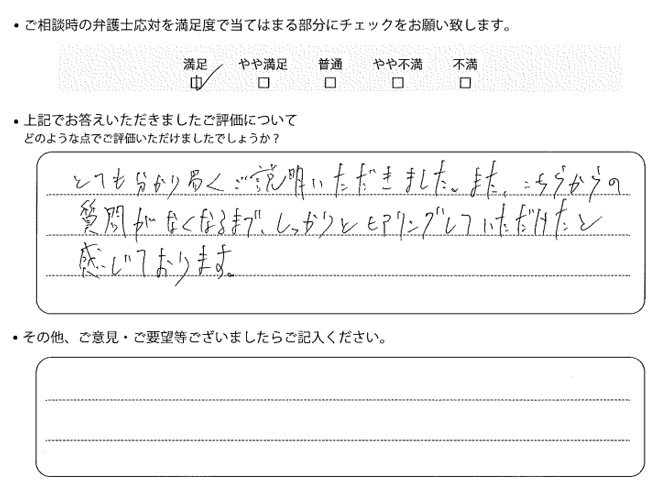 • ご相談時の弁護士応対を満足度で当てはまる部分にチェックをお願い致します。
満足 やや満足 普通 やや不満 不満
• 上記でお答えいただきましたご評価について
どのような点でご評価いただけましたでしょうか？
とても分かり易くご説明いただきました。また、こちらからの
質問がなくなるまで、しっかりとヒアリングしていただけたと
感じております。
• その他、ご意見・ご要望等ございましたらご記入ください。